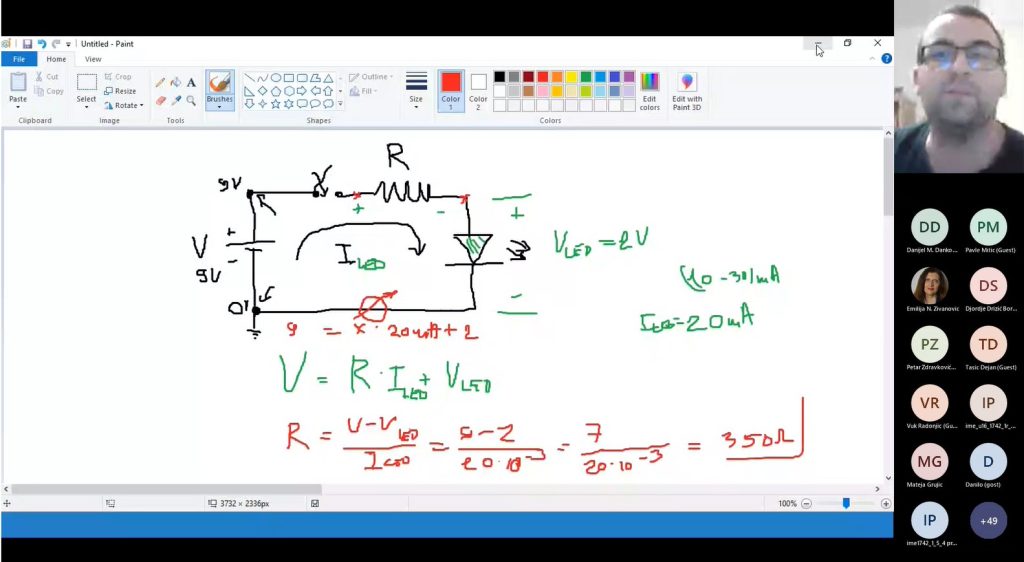 Untitled - Paint
File
Home
View
Paste
Cut
Copy
Clipboard
Select
Crop
Resize
Rotate
Image
Tools
Brushes
Outline
Fill
Shapes
Size
Color 1
Color 2
Edit colors
Edit with Paint 3D
Colors
R
9V
+ -
+
V
+
-
9V
I LED
V LED = 2V
(10-30)mA
I LED = 20mA
-
9 = x · 20mA + 2
V = R · I LED + V LED
R = V - V LED / I LED = 9 - 2 / 20·10⁻³ = 7 / 20·10⁻³ = 350Ω
3732 × 2336px
100%
DD
PM
Danijel M. Danko...
Pavle Mitic (Guest)
DS
Emilija N. Zivanovic
Djordje Drizić Bor...
PZ
TD
Petar Zdravković...
Tasic Dejan (Guest)
VR
IP
Vuk Radonjic (Gu...
ime_u16_1742_tr_...
MG
D
Mateja Grujic
Danilo (gost)
IP
+49
ime1742_1_5_4 pr...